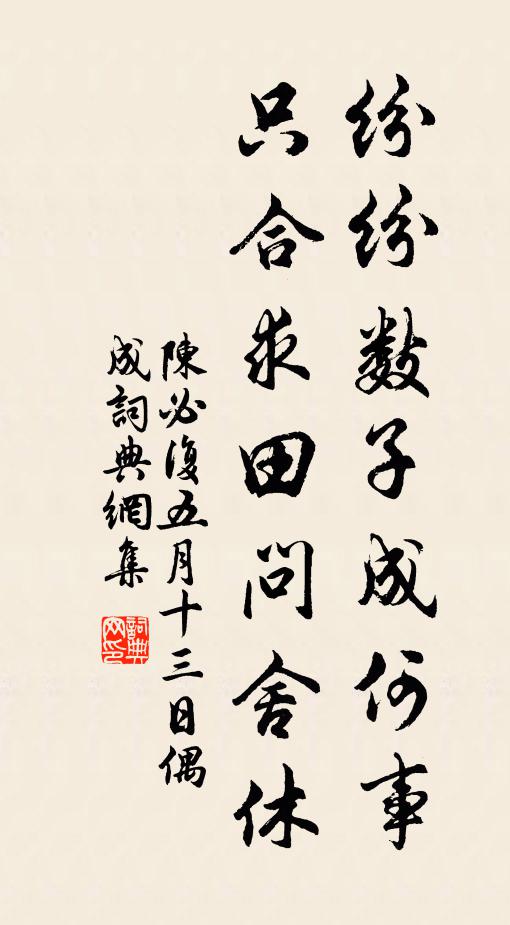 纷纷数子成何事
只合求田问舍休
陳必復五月十三日偶
成詞典網集
詞典
网印